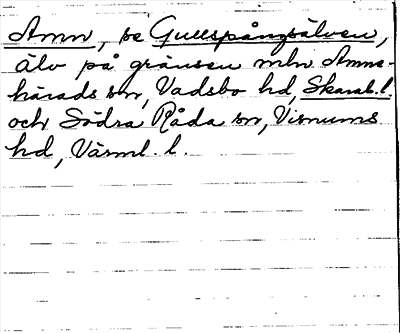 Amn, se Gullspångsälven,
älv på gränsen mln Amne-
härads sn, Vadsbo hd, Skarab. l.
och Södra Råda sn, Visnums
hd, Värml. l.